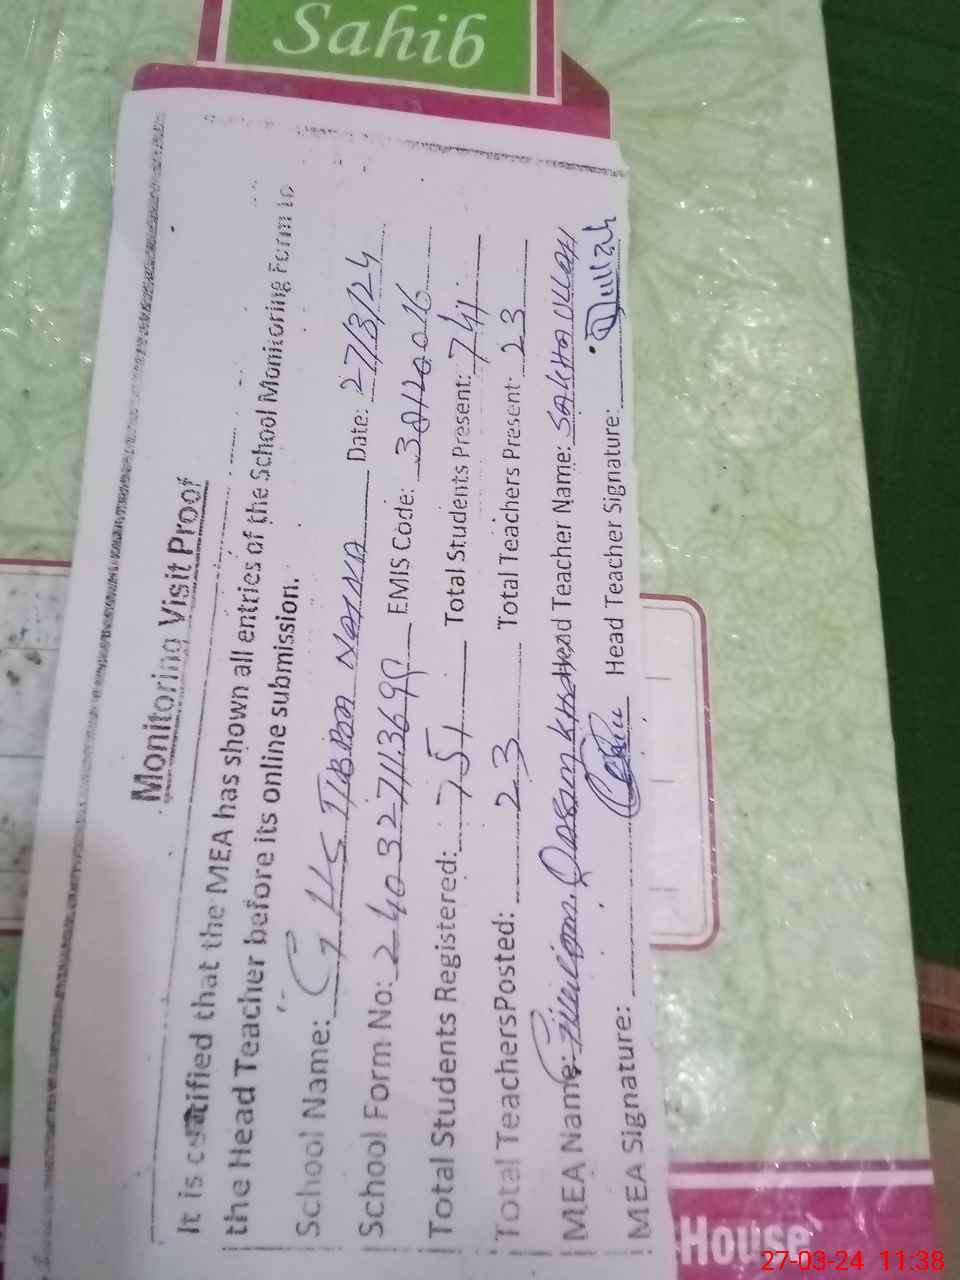 Sahib
Monitoring Visit Proof
It is certified that the MEA has shown all entries of the School Monitoring Form to
the Head Teacher before its online submission.
School Name: GHS TIBBA Date: 27/3/24
School Form No: EMIS Code:
Total Students Registered: 751 Total Students Present: 741
Total Teachers Posted: 23 Total Teachers Present: 23
MEA Name: Head Teacher Name:
MEA Signature: Head Teacher Signature:
House
27-03-24 11:38